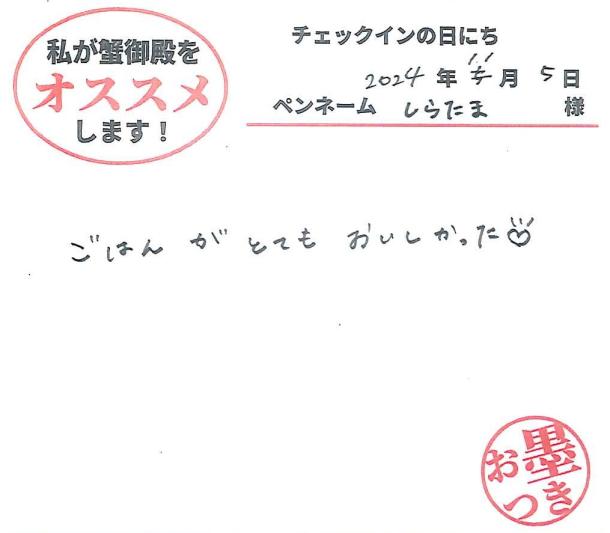 私が蟹御殿を
オススメ
します！
チェックインの日にち
2024年 11月 5日
ペンネーム しらたま 様
ごはんが とても おいしかった♡
お墨
つき